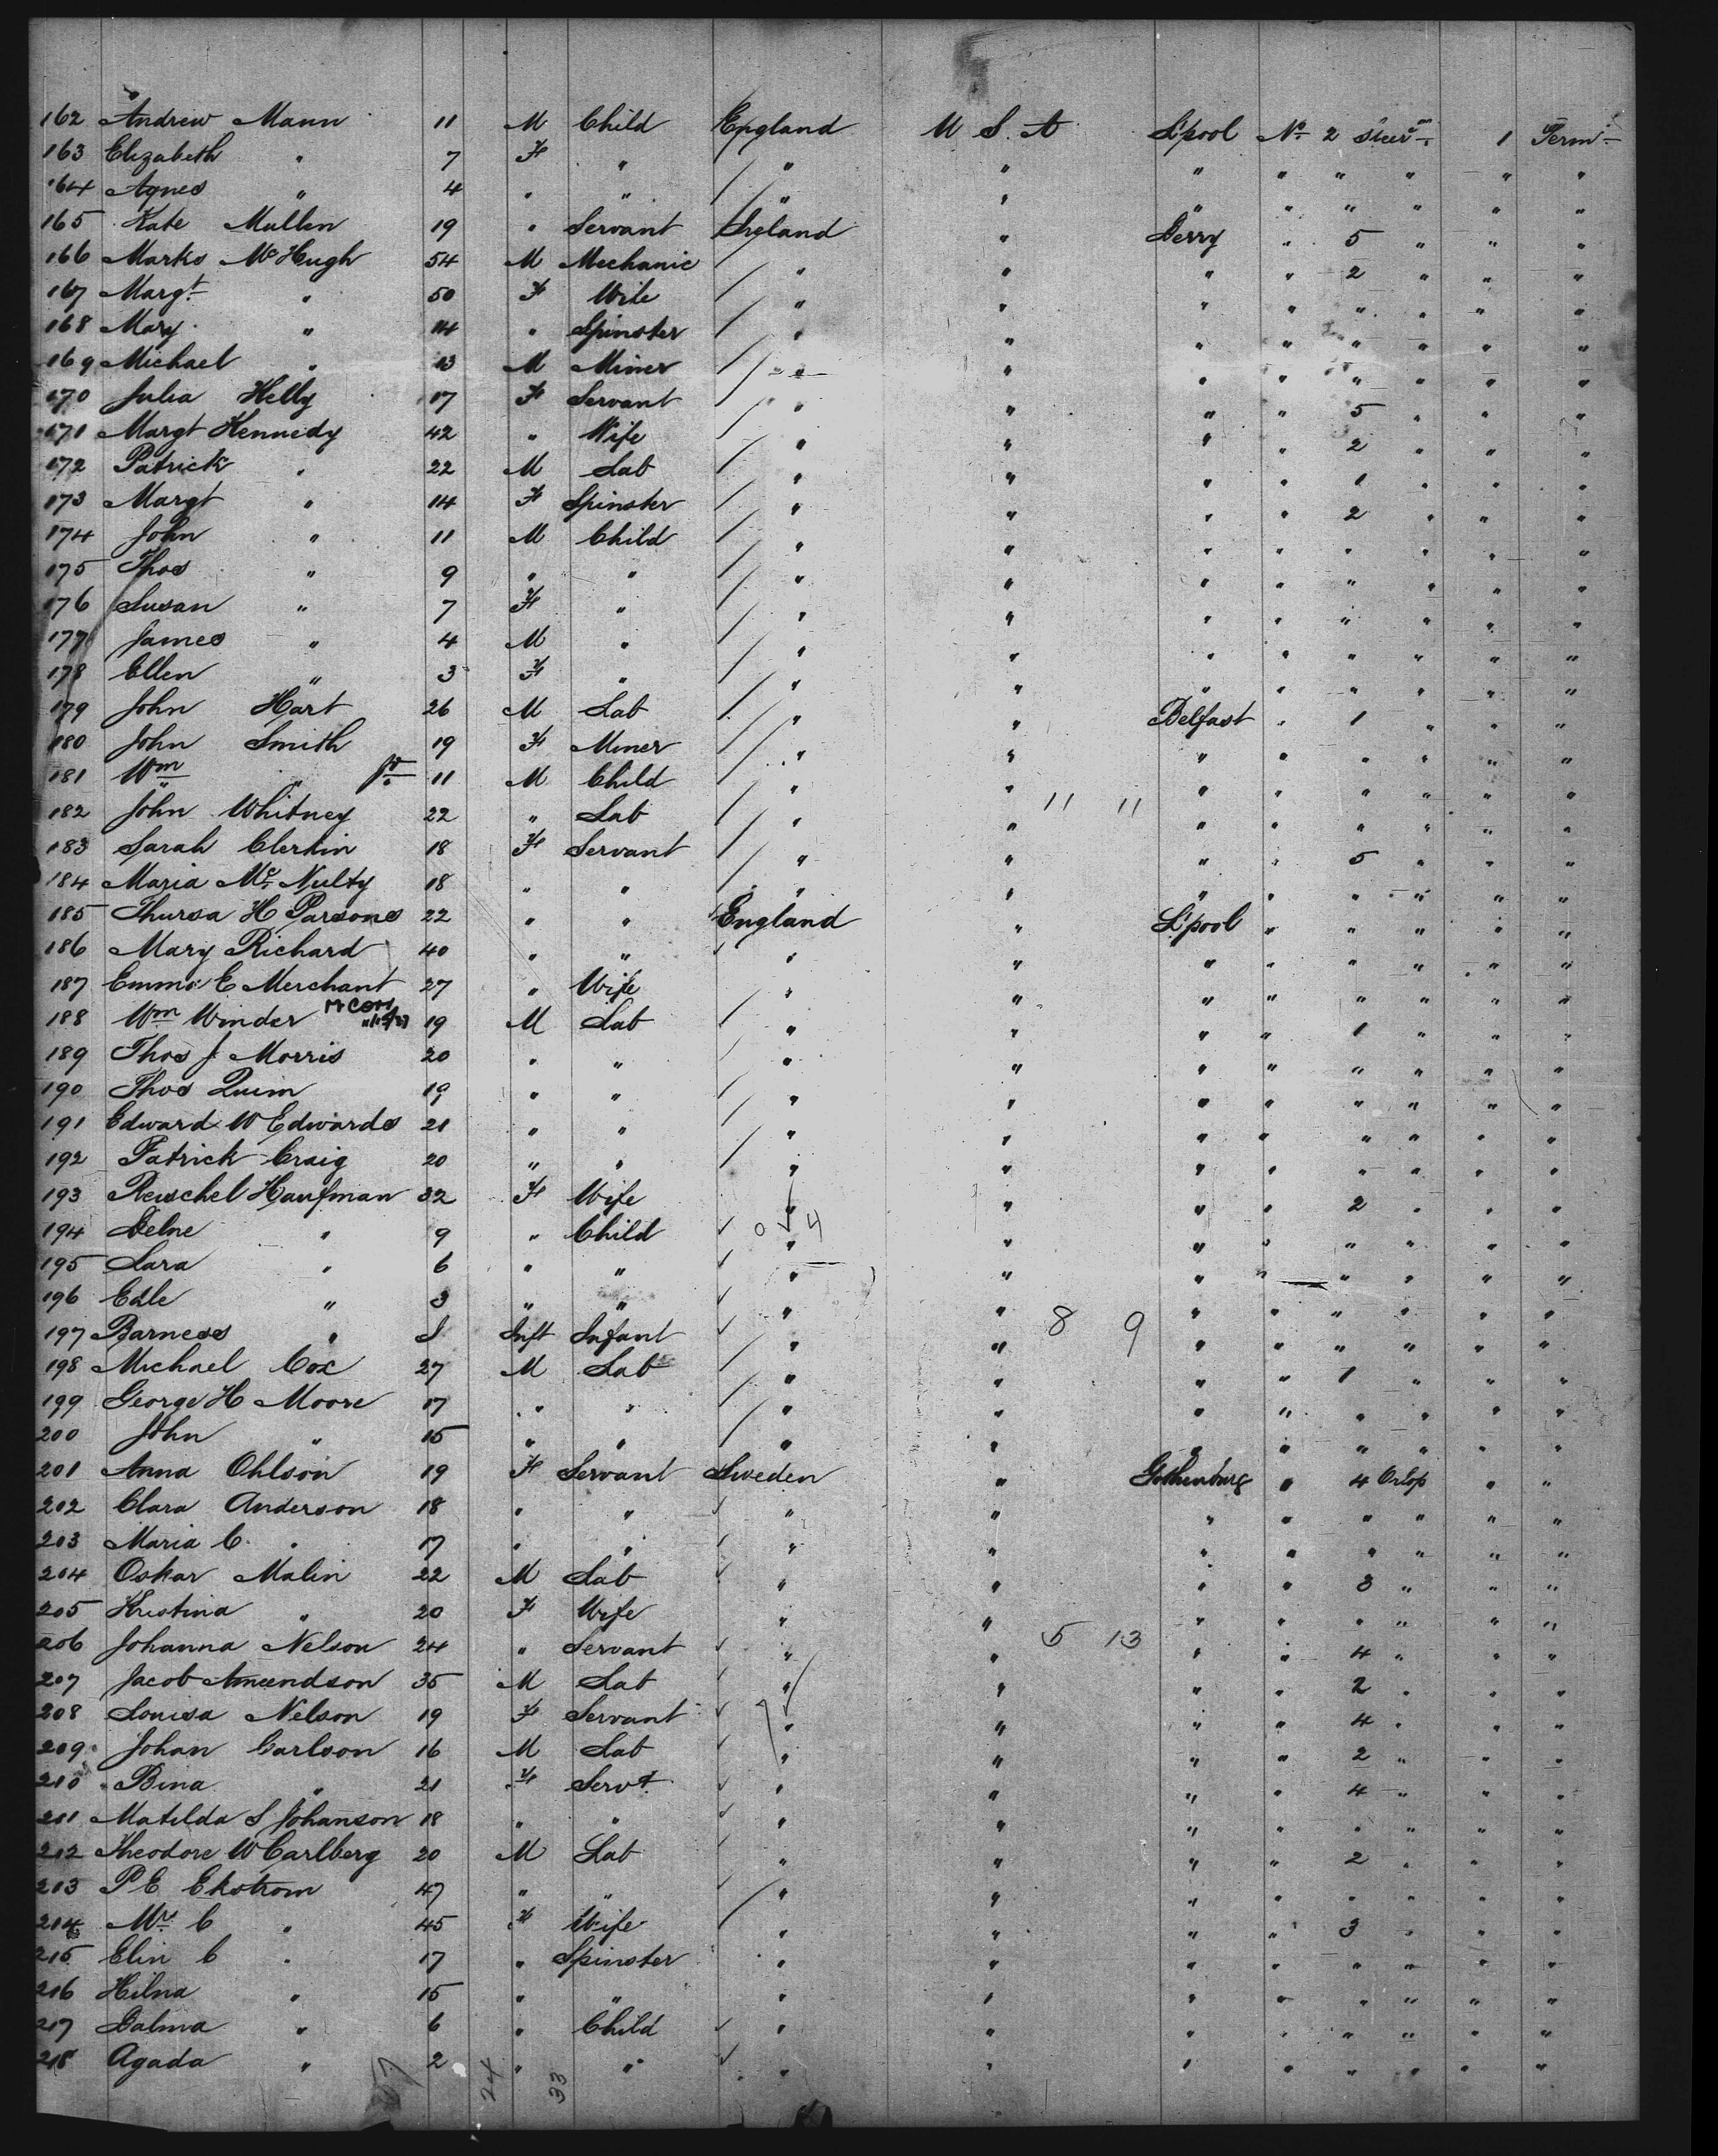 162 Andrew Mann 11 M Child England U S. A L'pool No 2 Steer 1 Perm
163 Elizabeth " 7 F " " " " " " " " "
164 Agnes " 4 " " " " " " " " " "
165 Kate Mullen 19 " Servant Ireland " Derry " 5 " " "
166 Marks McHugh 54 M Mechanic " " " " 2 " " "
167 Margt " 50 F Wife " " " " " " " "
168 Mary " 14 " Spinster " " " " " " " "
169 Michael " 13 M Miner " " " " " " " "
170 Julia Helly 17 F Servant " " " " 5 " " "
171 Margt Kennedy 42 " Wife " " " " 2 " " "
172 Patrick " 22 M Lab " " " " 1 " " "
173 Margt " 14 F Spinster " " " " 2 " " "
174 John " 11 M Child " " " " " " " "
175 Thos " 9 " " " " " " " " " "
176 Susan " 7 F " " " " " " " " "
177 James " 4 M " " " " " " " " "
178 Ellen " 3 F " " " " " " " " "
179 John Hart 26 M Lab " " Belfast " 1 " " "
180 John Smith 19 F Miner " " " " " " " "
181 Wm " Jr 11 M Child " " " " " " " "
182 John Whitney 22 " Lab " " 11 11 " " " " " "
183 Sarah Clerkin 18 F Servant " " " " 5 " " "
184 Maria McNulty 18 " " " " " " " " " "
185 Thursa H Parsons 22 " " England " L'pool " " " " "
186 Mary Richard 40 " " " " " " " " " "
187 Emma E Merchant 27 " Wife " " " " " " " "
188 Wm Winder 19 M Lab " " " " 1 " " "
189 Thos J Morris 20 " " " " " " " " " "
190 Thos Quim 19 " " " " " " " " " "
191 Edward W Edwards 21 " " " " " " " " " "
192 Patrick Craig 20 " " " " " " " " " "
193 Reuschel Haufman 32 F Wife " " " " 2 " " "
194 Delne " 9 " Child " " " " " " " "
195 Sara " 6 " " " " " " " " " "
196 Edle " 3 " " " " " " " " " "
197 Barness " Inft Infant " " 8 9 " " " " " "
198 Michael Cox 27 M Lab " " " " 1 " " "
199 George H Moore 17 " " " " " " " " " "
200 John " 15 " " " " " " " " " "
201 Anna Ohlson 19 F Servant Sweden " Gothenburg " 4 Orlop " "
202 Clara Anderson 18 " " " " " " " " " "
203 Maria C " 17 " " " " " " " " " "
204 Oskar Malin 22 M Lab " " " " 3 " " "
205 Kristina " 20 F Wife " " " " " " " "
206 Johanna Nelson 24 " Servant " " 5 13 " " 4 " " "
207 Jacob Amundson 35 M Lab " " " " 2 " " "
208 Louisa Nelson 19 F Servant " " " " 4 " " "
209 Johan Carlson 16 M Lab " " " " 2 " " "
210 Bina " 21 F Servt " " " " 4 " " "
211 Matilda S Johanson 18 " " " " " " " " " "
212 Theodore W Carlberg 20 M Lab " " " " 2 " " "
213 P E Ekstrom 47 " " " " " " " " " "
214 Mrs C " 45 F Wife " " " " 3 " " "
215 Elin C " 17 " Spinster " " " " " " " "
216 Hilna " 15 " " " " " " " " " "
217 Dalma " 6 " Child " " " " " " " "
218 Agada " 2 " " " " " " " " " "
24 33